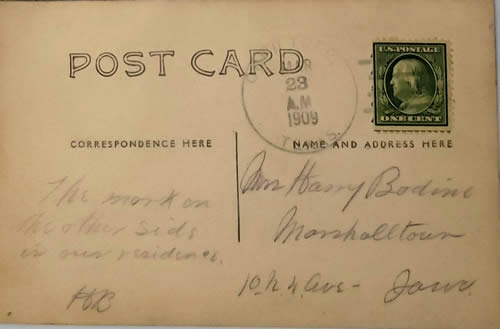 POST CARD
MAR
23
A.M
1909
TEXAS
U.S. POSTAGE
ONE CENT
CORRESPONDENCE HERE
NAME AND ADDRESS HERE
The mark on
the other side
is our residence.
HB
Mrs Harry Bodine
Marshalltown
10 N. 4 Ave - Iowa